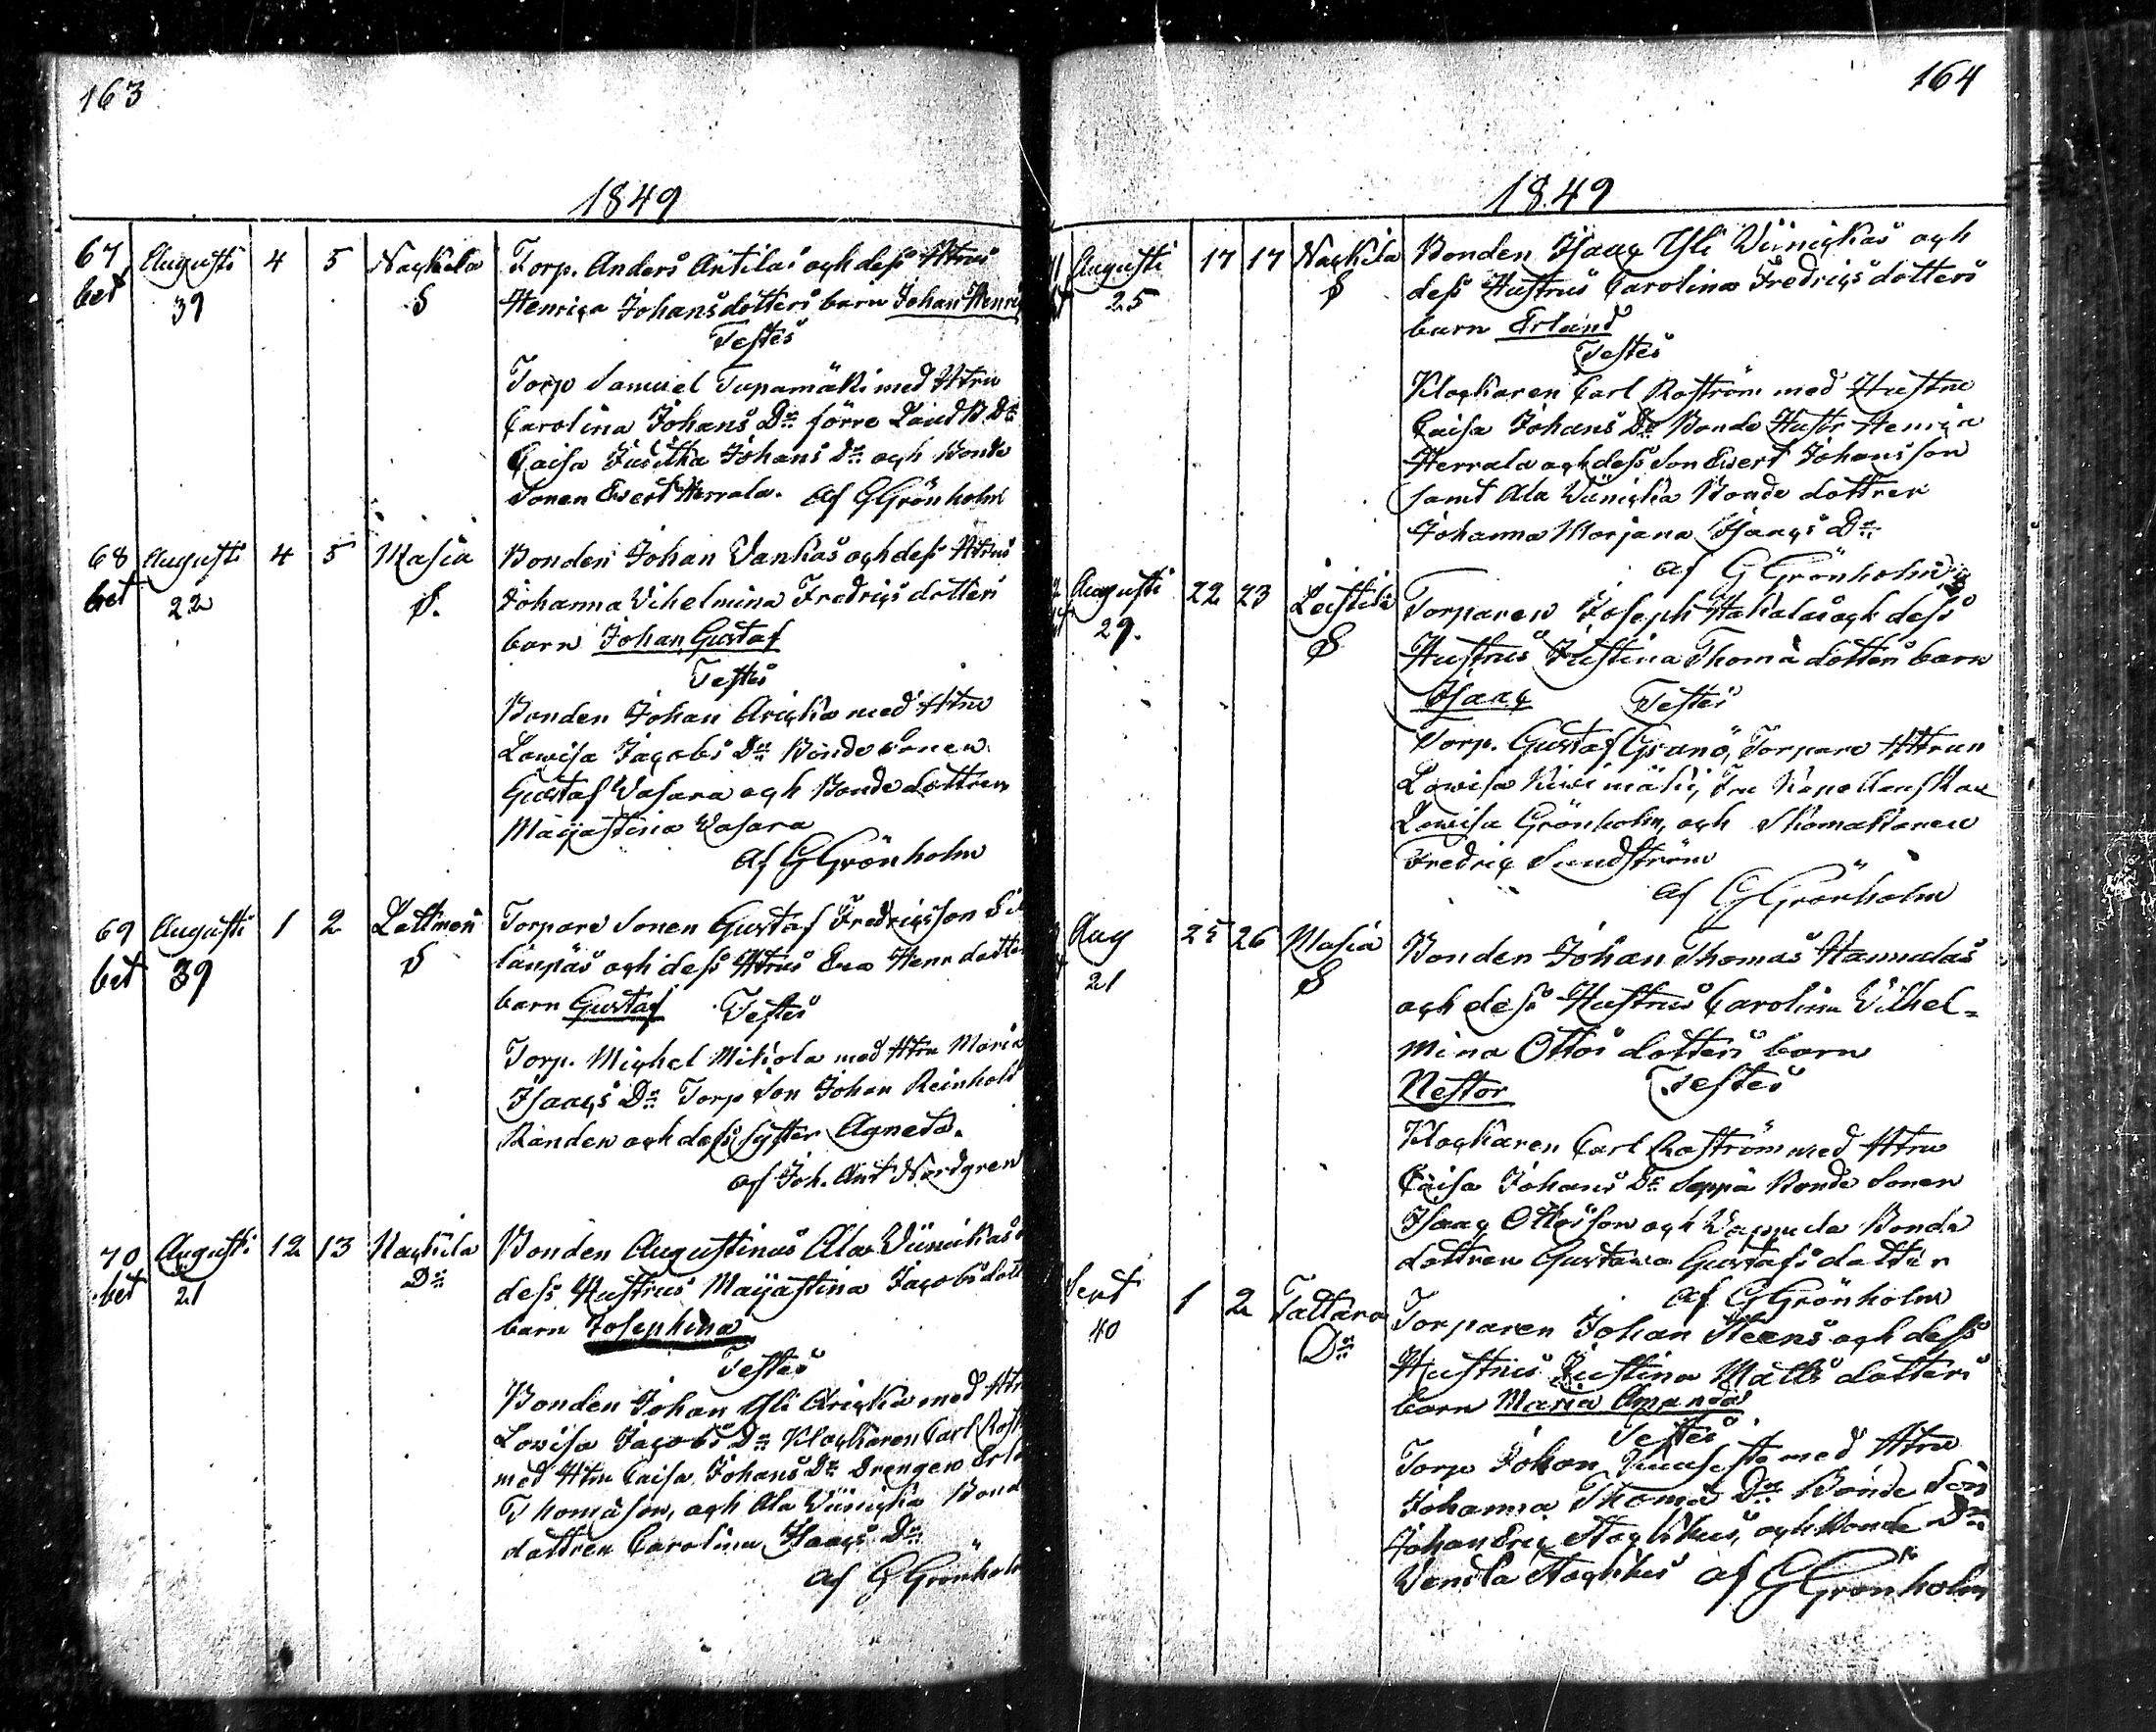 163
1849
67 Augusti 4 5 Nackila Torp. Anders Antilas och dess Htrus
bet 39 S Henrica Johansdotters barn Johan Henric
Testes
Torp Samuel Tupamäki med Htru
Carolina Johans Dr förre
Caisa Johans Dr och Bonde
Sonen Evert Herrala. af G Grönholm
68 Augusti 4 5 Masia Bonden Johan Vankas och dess Htrus
bet 22 S. Johanna Vilhelmina Fredrics dotters
barn Johan Gustaf
Testes
Bonden Johan Aricka med Htru
Lowisa Jacobs Dr Bonde Sonen
Gustaf Wasara och Bonde dottren
Majastina Wasara
af G Grönholm
69 Augusti 1 2 Lattmeri Torpare Sonen Gustaf Fredricsson
bet 39 S och dess Htrus Eva Henr dotters
barn Gustaf Testes
Torp. Michel Mikola med Htru Maria
Isaacs Dr Torp Son Johan Reinhold
Randen och dess syster Agneta.
af Joh. Ant Nordgren
70 Augusti 12 13 Nackila Bonden Augustinus Ala Viinikas
bet 21 Dr dess Hustrus Majastina Jacobsdott
barn Josephina
Testes
Bonden Johan Yli Aricka med Htru
Lovisa Jacobs Dr Klockaren Carl Rost
med Htru Caisa Johans Dr Drengen Erla
Thomasson, och Ala Viinicka Bond
dottren Carolina Isaacs Dr
af G Grönholm
164
1849
Augusti 17 17 Nackila Bonden Isaac Yli Viinickas och
25 S dess Hustrus Carolina Fredrics dotters
barn Erland
Testes
Klockaren Carl Roström med Hustru
Caisa Johans Dr Bonde Hustr Henrica
Herrala och dess Son Evert Johansson
samt Ala Viinicka Bonde dottren
Johanna Marjana Isaacs Dr
af G Grönholm
Augusti 22 23 Leistilä Torparen Joseph Hakalas och dess
29. S Hustrus Justina Thomä dotters barn
Isaac Testes
Torp. Gustaf Granö, Torpare Htrun
Lowisa Kivimäki, Fru Kapellanskan
Lowisa Grönholm, och Skomakaren
Fredric Sundström
af G Grönholm
Aug 25 26 Masia Bonden Johan Thomas Hannulas
21 S och dess Hustrus Carolina Vilhel=
mina Ottos dotters barn
Nestor Testes
Klockaren Carl Roström med Htru
Caisa Johans Dr Seppä Bonde Sonen
Isaac Ottosson och Wappula Bonde
dottren Gustava Gustafs dotter
af G Grönholm
Sept 1 2 Tattara Torparen Johan Steens och dess
40 Dr Hustrus Justina Matts dotters
barn Maria Amanda
Testes
Torp Johan med Htru
Johanna Thomä Dr Bonde Son
Johan Eric och Bonde Dr
Wendla af G Grönholm